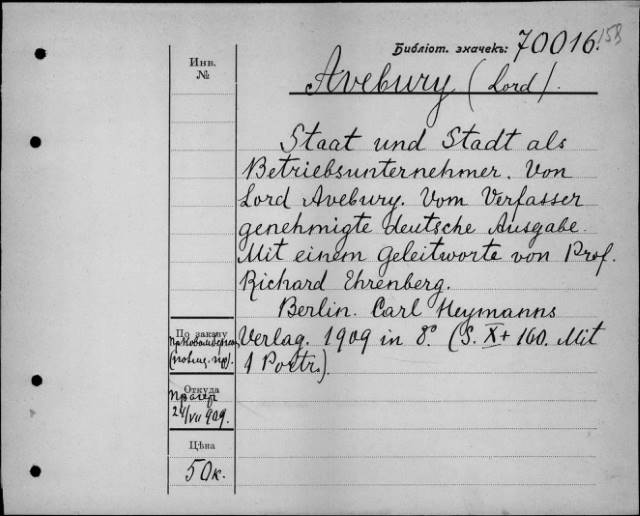 Библіот. значекъ: 70016. 158
Инв.
№
Avebury (Lord).
Staat und Stadt als
Betriebsunternehmer. Von
Lord Avebury. Vom Verfasser
genehmigte deutsche Ausgabe.
Mit einem Geleitworte von Prof.
Richard Ehrenberg.
Berlin. Carl Heymanns
Verlag. 1909 in 8º. (S. X + 160. Mit
1 Portr.).
По заказу
Откуда
Прагер
24/VII 909.
Цѣна
50 к.